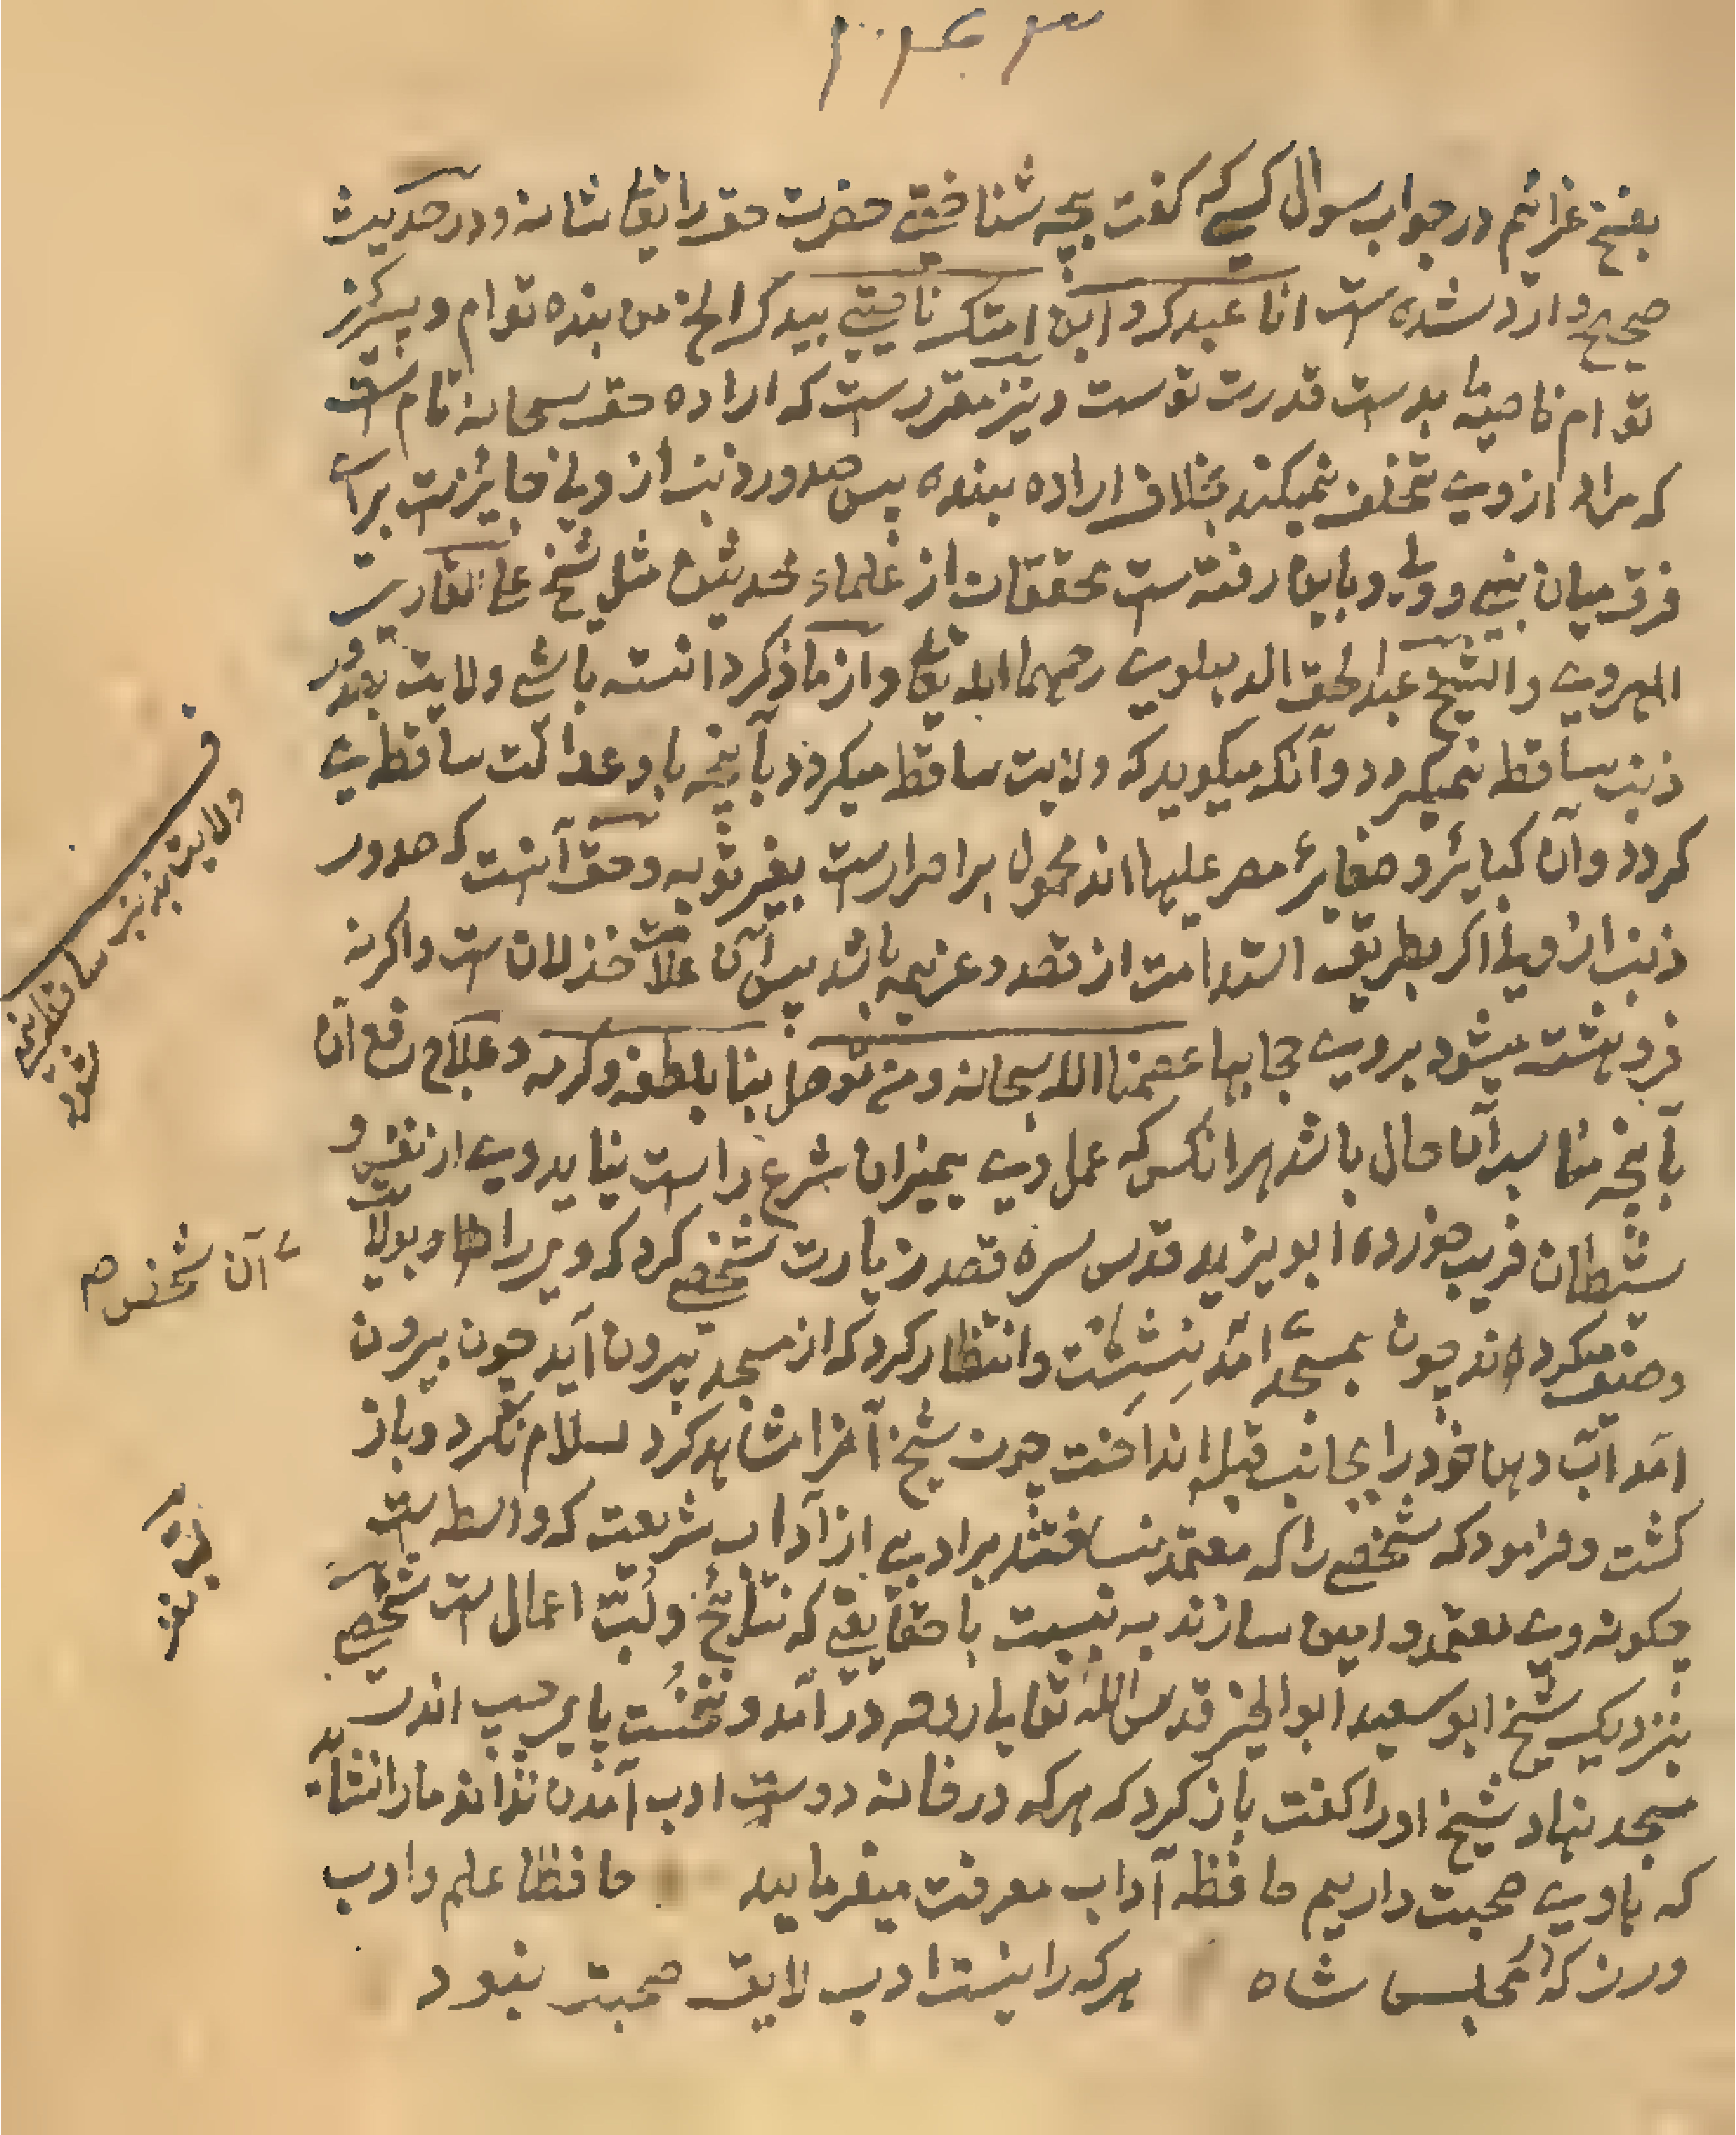 بفسخ عزائم در جواب سوال کسی که گفت بچه شناختی حضرت حق را تعالی شانه و در حدیث
صحیح وارد شده ست انا عبدک و ابن امتک ناصیتی بیدک الخ من بنده توام و پسر کنیز
توام ناصیه ما بدست قدرت توست و نیز مقررست که اراده حق سبحانه تام ست
که مراد از وی تخلف نمیکند بخلاف اراده بنده پس صدور ذنب از ولی جایزست برای
فرق میان نبی و ولی و باین رفته ست محققان از علماء محدثین مثل شیخ علی القاری
الهروی و الشیخ عبد الحق الدهلوی رحمهما الله تعالی و از ما ذکر دانسته باشی ولایت بصدور
ذنب ساقط نمیگردد و آنکه میگوید که ولایت ساقط میگردد بآنچه باو عدالت ساقط می
گردد و آن کبایر و صغایر مصر علیها اند محمول بر اصرارست بغیر توبه و حق آنست که صدور
ذنب از ولی اگر بطریق استدامت از قصد و عزیمه باشد پس آن علامت خذلان ست و اگر نه
فرو هشت میشود بروی حجابها عصمنا الله سبحانه و من توصل بنا بلطفه و کرمه و علاج رفع آن
بآنچه مناسب آن حال باشد هر انکس که عمل وی بمیزان شرع راست نیاید وی از نفس و
شیطان فریب خورده ابو یزید قدس سره قصد زیارت شخصی کرد که ویرا بولایت
وصف میکردند چون بمسجد آمد بنشست و انتظار کرد که از مسجد بیرون آید چون بیرون
آمد آب دهان خود را بجانب قبله انداخت چون شیخ آنرا مشاهد کرد سلام نکرد و باز
گشت و فرمود که شخصی را که معتمد نساختند بر ادبی از آداب شریعت که واسطه ست
چگونه وی معتمد و امین سازند به نسبت با حقایقی که نتایج و لب اعمال ست شخصی
بنزدیک شیخ ابو سعید ابو الخیر قدس الله تعالی روحه در آمد و نخست پای چپ اندر
مسجد نهاد شیخ او را گفت باز گرد که هر که در خانه دوست ادب آمدن نداند ما را نشاید
که با وی صحبت داریم حافظه آداب معرفت میفرماید حافظا علم و ادب
ورز که در مجلس شاه هر که را نیست ادب لایق صحبت نبود
ولایت بذنب ساقط نمی
شود
آن شخص صح